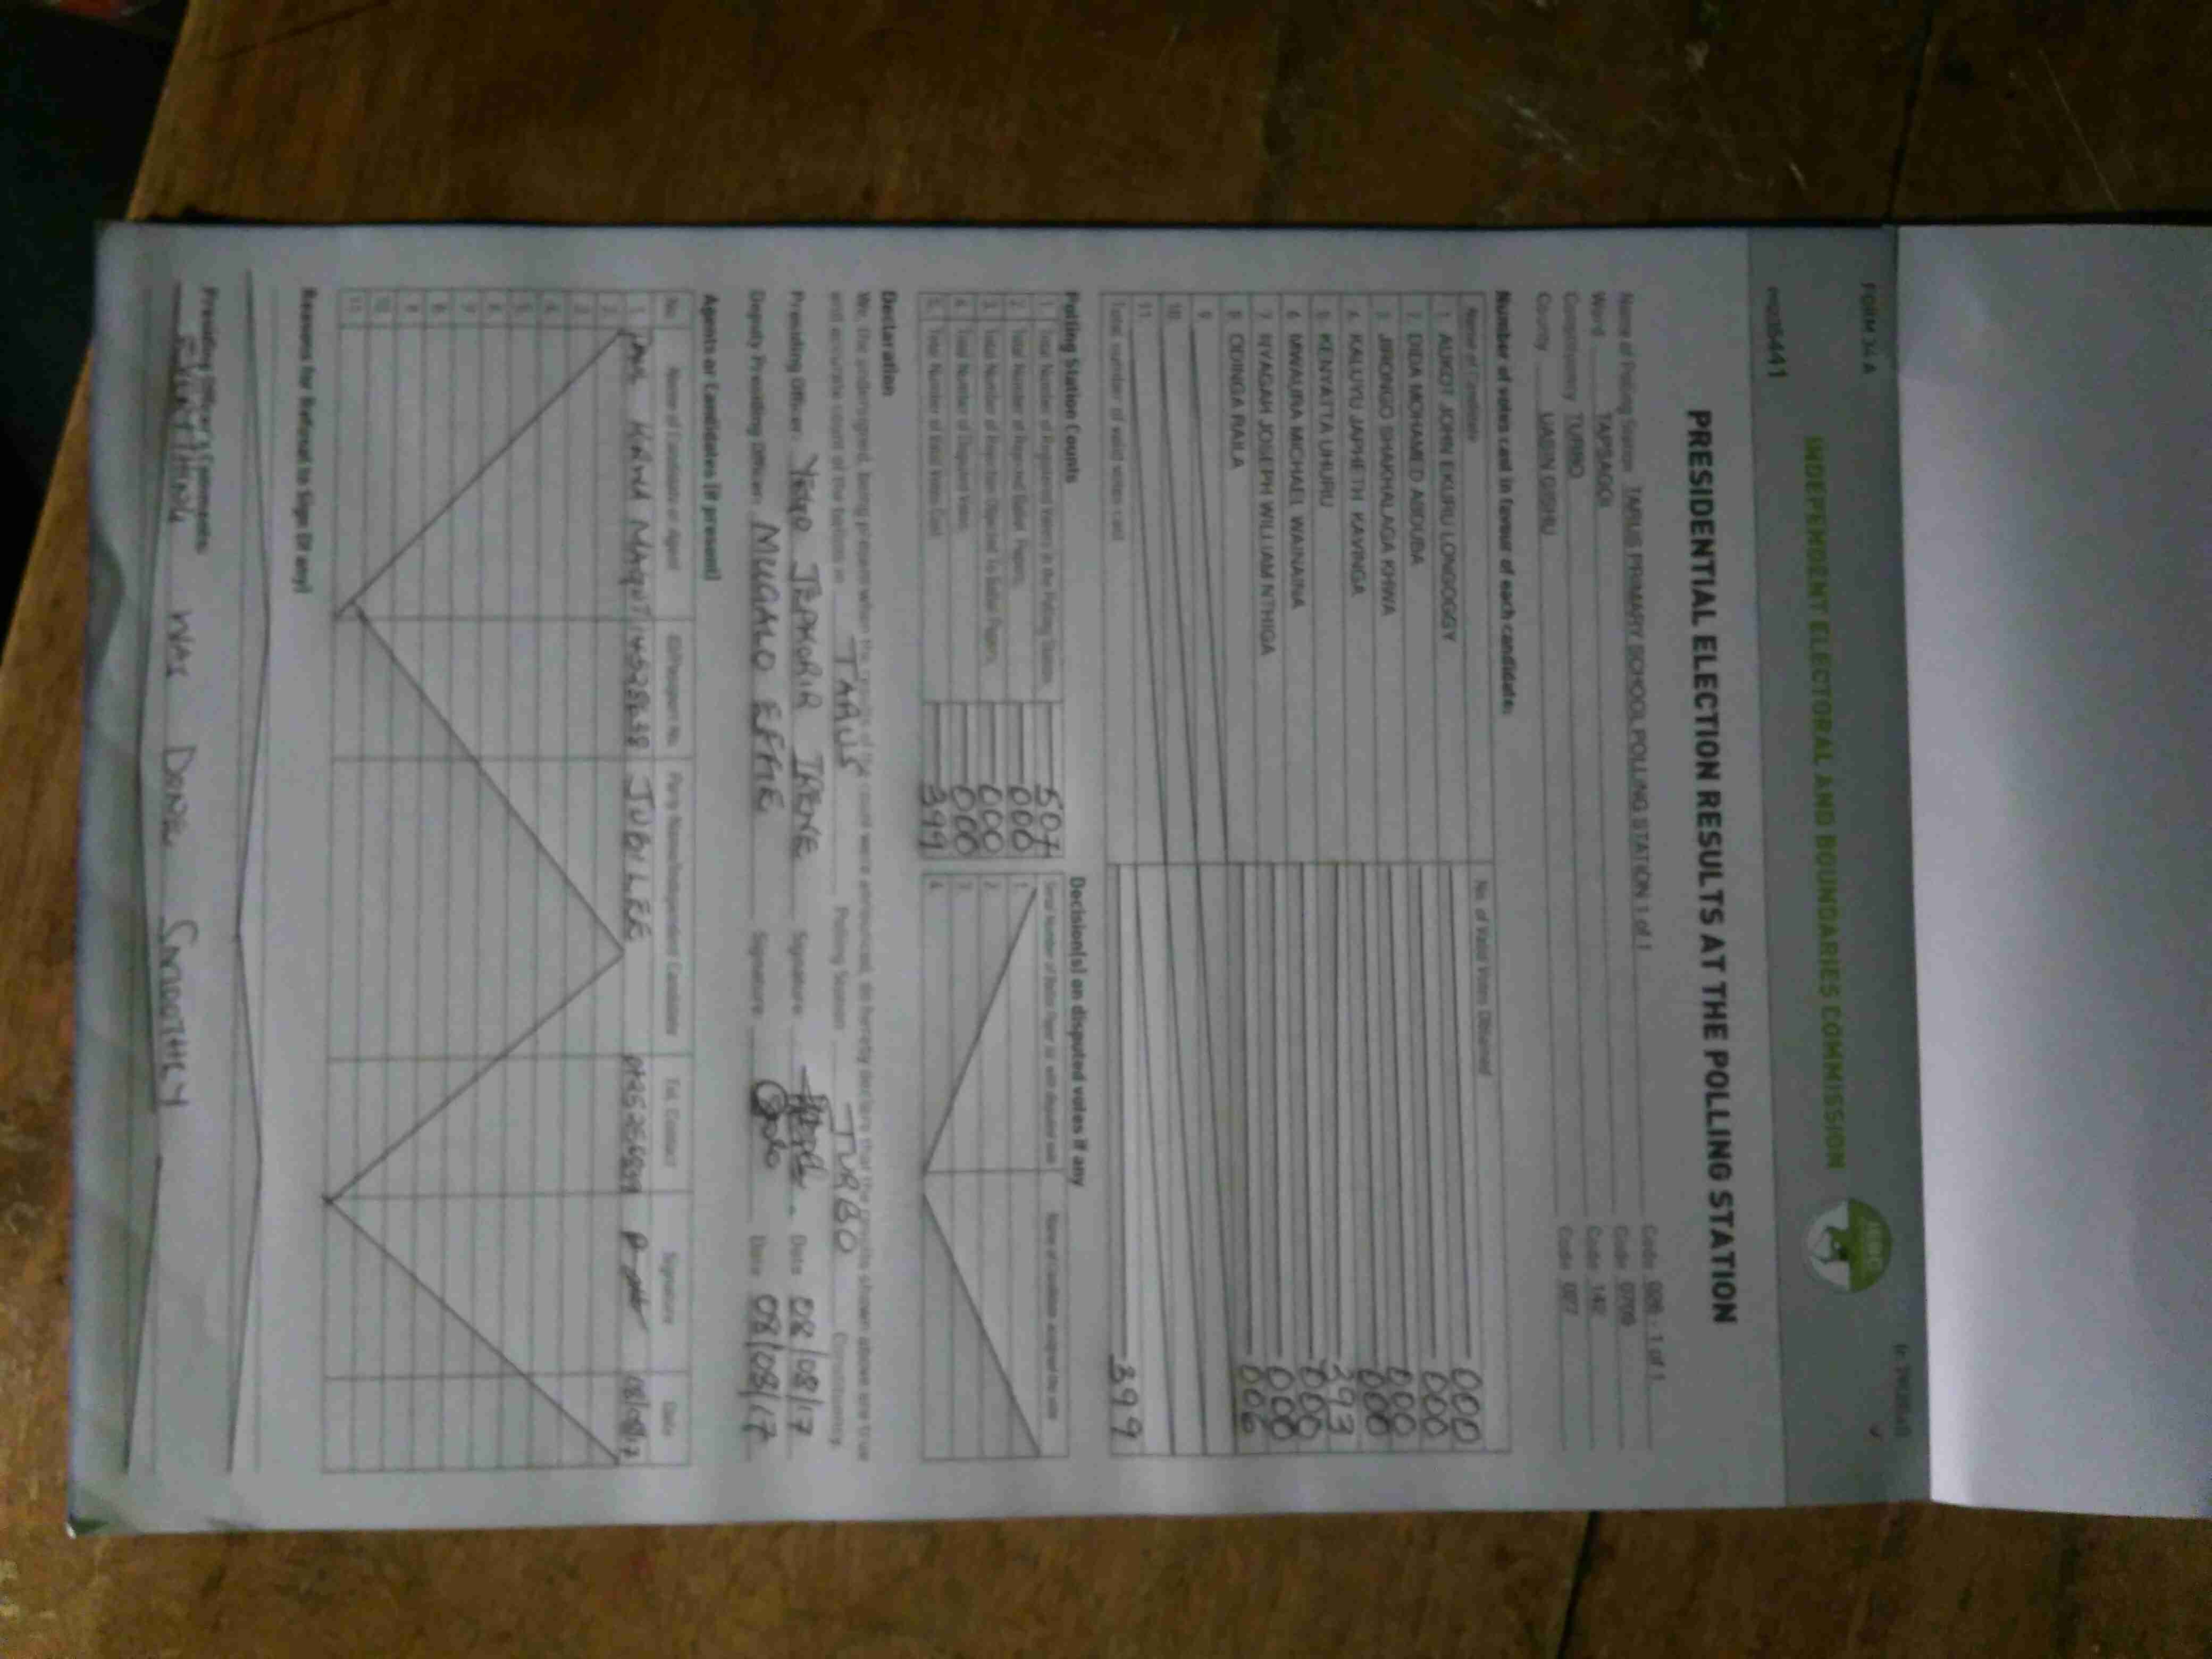 FORM 34 A
INDEPENDENT ELECTORAL AND BOUNDARIES COMMISSION
IEBC
PRESIDENTIAL ELECTION RESULTS AT THE POLLING STATION
Name of Polling Station TARUS PRIMARY SCHOOL POLLING STATION 1 of 1 Code 028 - 1 of 1
Ward TAPSAGOI Code 0709
Constituency TURBO Code 142
County UASIN GISHU Code 027
Number of votes cast in favour of each candidate:
Name of Candidate No. of Valid Votes Obtained
1. AUKOT JOHN EKURU LONGOGGY 000
2. DIDA MOHAMED ABDUBA 000
3. JIRONGO SHAKHALAGA KHWA 000
4. KALUYU JAPHETH KAVINGA 000
5. KENYATTA UHURU 393
6. MWAURA MICHAEL WAINAINA 000
7. NYAGAH JOSEPH WILLIAM NTHIGA 000
8. ODINGA RAILA 006
9.
10.
11.
Total number of valid votes cast 399
Polling Station Counts
1. Total Number of Registered Voters in the Polling Station 507
2. Total Number of Rejected Ballot Papers 000
3. Total Number of Rejection Objected To Ballot Papers 000
4. Total Number of Disputed Votes 000
5. Total Number of Valid Votes Cast 399
Decision(s) on disputed votes if any
1.
2.
3.
4.
Declaration
We, the undersigned, being present when the results of the count were announced, do hereby declare that the results shown above are true
and accurate count of the ballots in TARUS Polling Station TURBO Constituency.
Presiding Officer: YEGO JEPKORIR IRENE Signature Date 08/08/17
Deputy Presiding Officer: MUGALO EFFIE Signature Date 08/08/17
Agents or Candidates (if present)
No. Name of Candidate or Agent ID/Passport No. Party Name/Independent Candidate Tel. Contact Signature Date
1. JUBILEE 08/08/17
2.
3.
4.
5.
6.
7.
8.
9.
10.
11.
Reasons for Refusal to Sign (if any)
Presiding Officer's Comments:
EVERYTHING WAS DONE SMOOTHLY